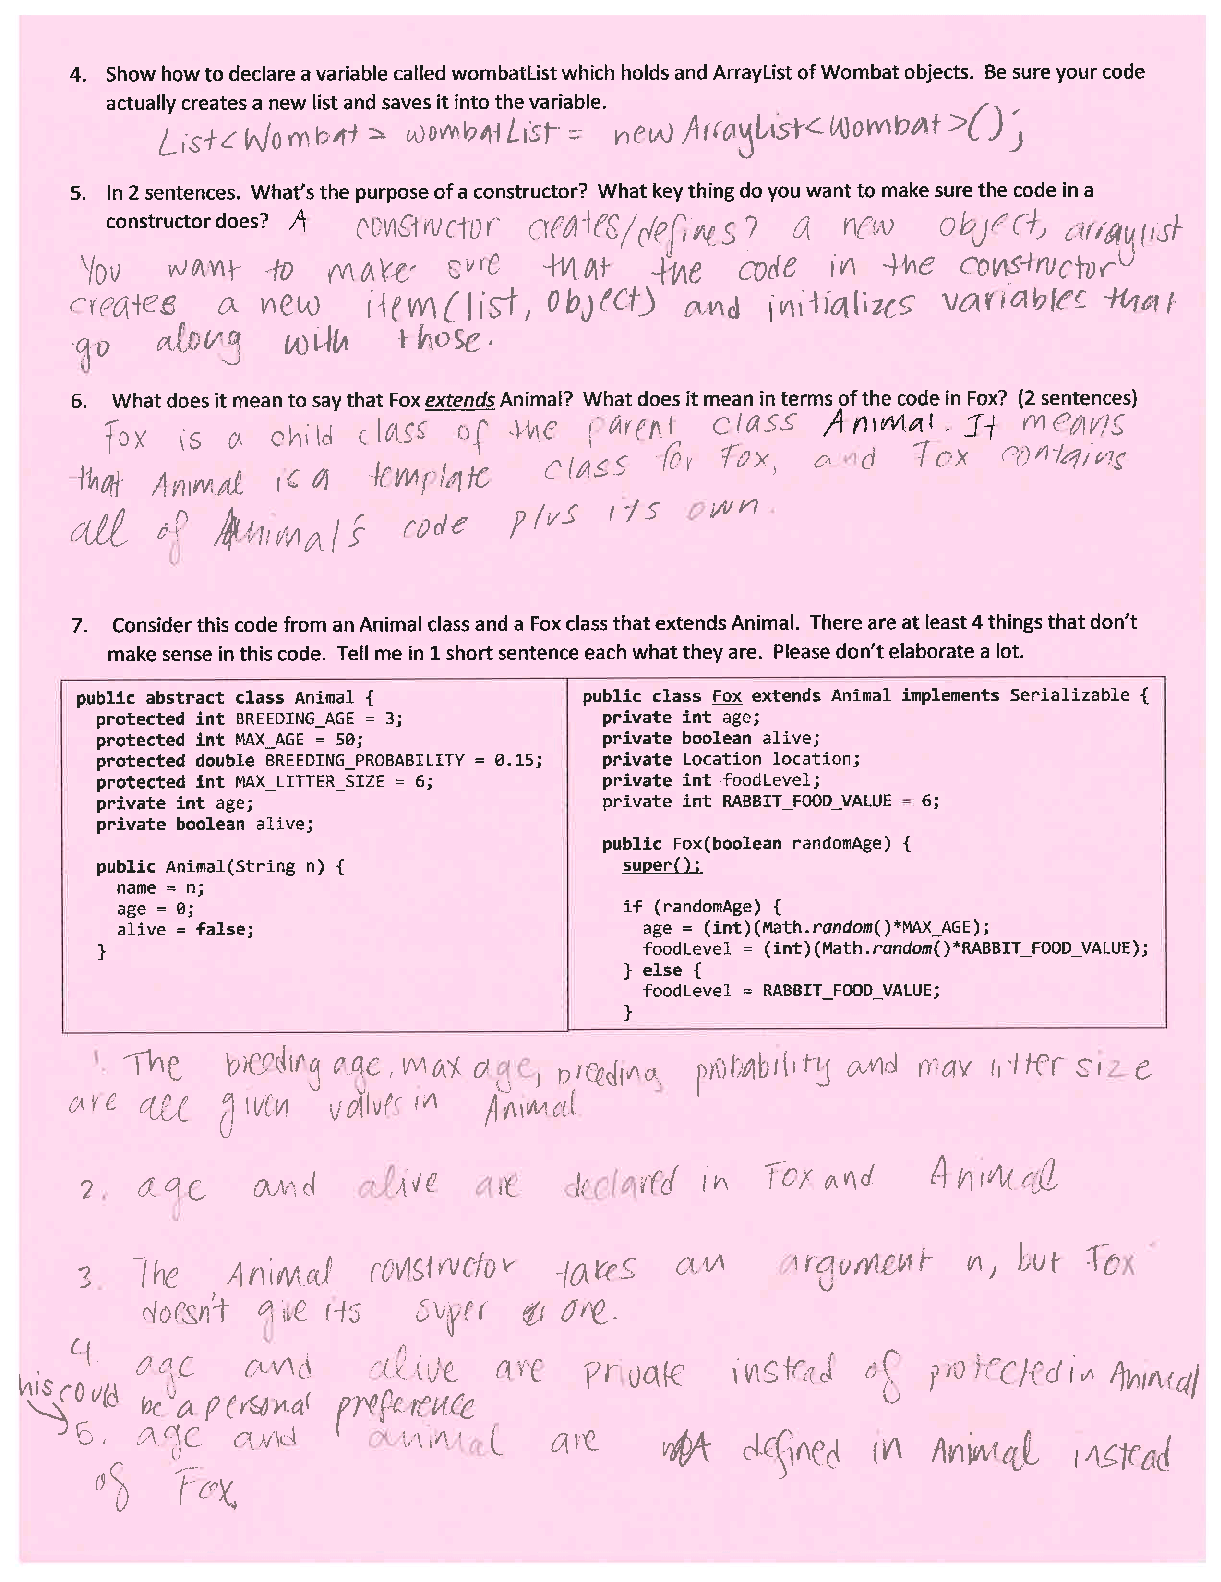 4. Show how to declare a variable called wombatList which holds and ArrayList of Wombat objects. Be sure your code
actually creates a new list and saves it into the variable.
List<Wombat> wombatList = new ArrayList<Wombat>();
5. In 2 sentences. What's the purpose of a constructor? What key thing do you want to make sure the code in a
constructor does? A constructor creates/defines? a new object, arraylist
You want to make sure that the code in the constructor
creates a new item (list, object) and initializes variables that
go along with those.
6. What does it mean to say that Fox extends Animal? What does it mean in terms of the code in Fox? (2 sentences)
Fox is a child class of the parent class Animal. It means
that Animal is a template class for Fox, and Fox contains
all of Animal's code plus its own.
7. Consider this code from an Animal class and a Fox class that extends Animal. There are at least 4 things that don't
make sense in this code. Tell me in 1 short sentence each what they are. Please don't elaborate a lot.
public abstract class Animal {
protected int BREEDING_AGE = 3;
protected int MAX_AGE = 50;
protected double BREEDING_PROBABILITY = 0.15;
protected int MAX_LITTER_SIZE = 6;
private int age;
private boolean alive;
public Animal(String n) {
name = n;
age = 0;
alive = false;
}
public class Fox extends Animal implements Serializable {
private int age;
private boolean alive;
private Location location;
private int foodLevel;
private int RABBIT_FOOD_VALUE = 6;
public Fox(boolean randomAge) {
super();
if (randomAge) {
age = (int)(Math.random()*MAX_AGE);
foodLevel = (int)(Math.random()*RABBIT_FOOD_VALUE);
} else {
foodLevel = RABBIT_FOOD_VALUE;
}
1. The breeding age, max age, breeding probability and max litter size
are all given values in Animal
2. age and alive are declared in Fox and Animal
3. The Animal constructor takes an argument n, but Fox
doesn't give its super one.
4. age and alive are private instead of protected in Animal
his could be a personal preference
5. age and animal are defined in Animal instead
of Fox